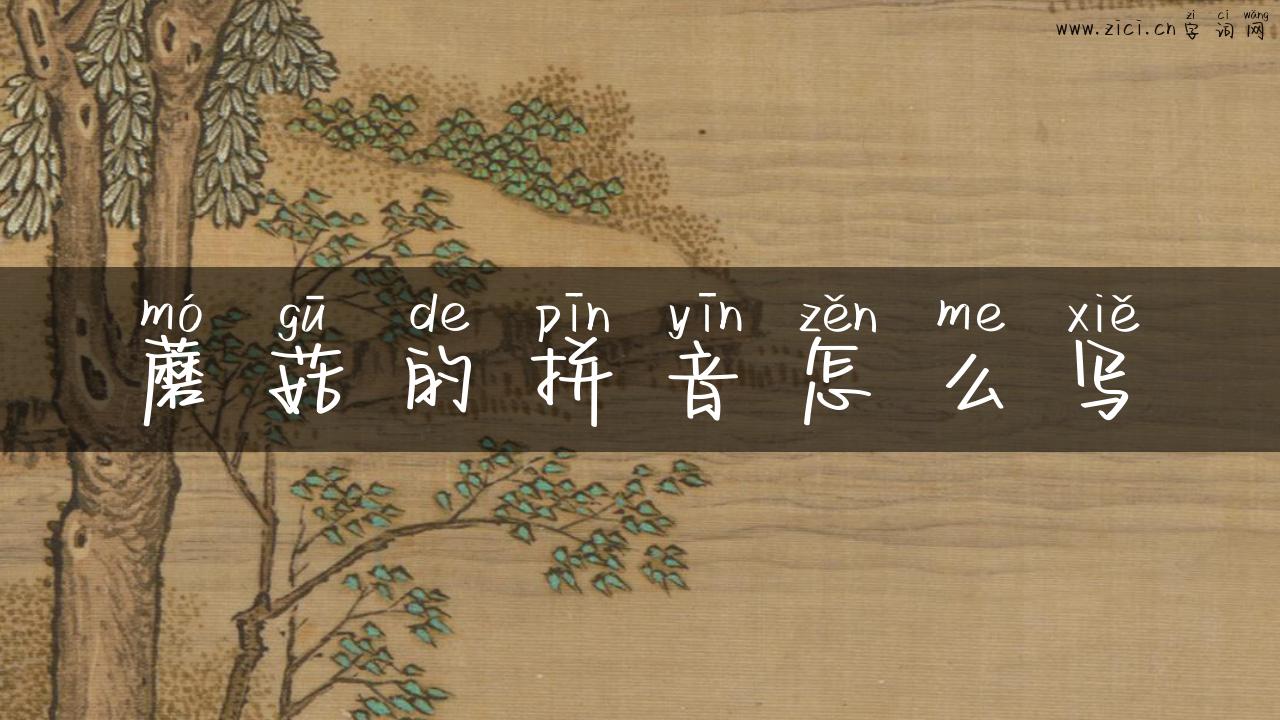 zì cí wǎng
www.zici.cn 字 词 网
mó gū de pīn yīn zěn me xiě
蘑 菇 的 拼 音 怎 么 写